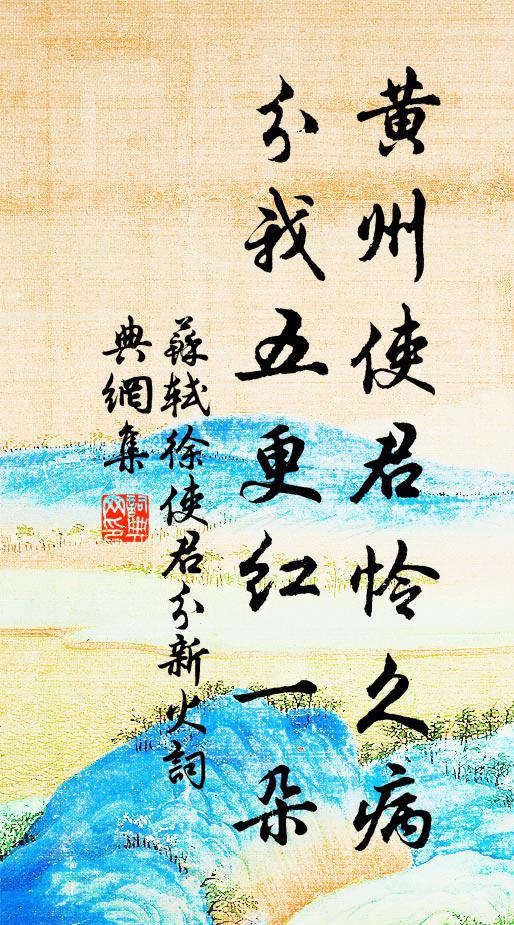 黄州使君怜久病
分我五更红一朵
蘇軾徐使君分新火詞
典網集